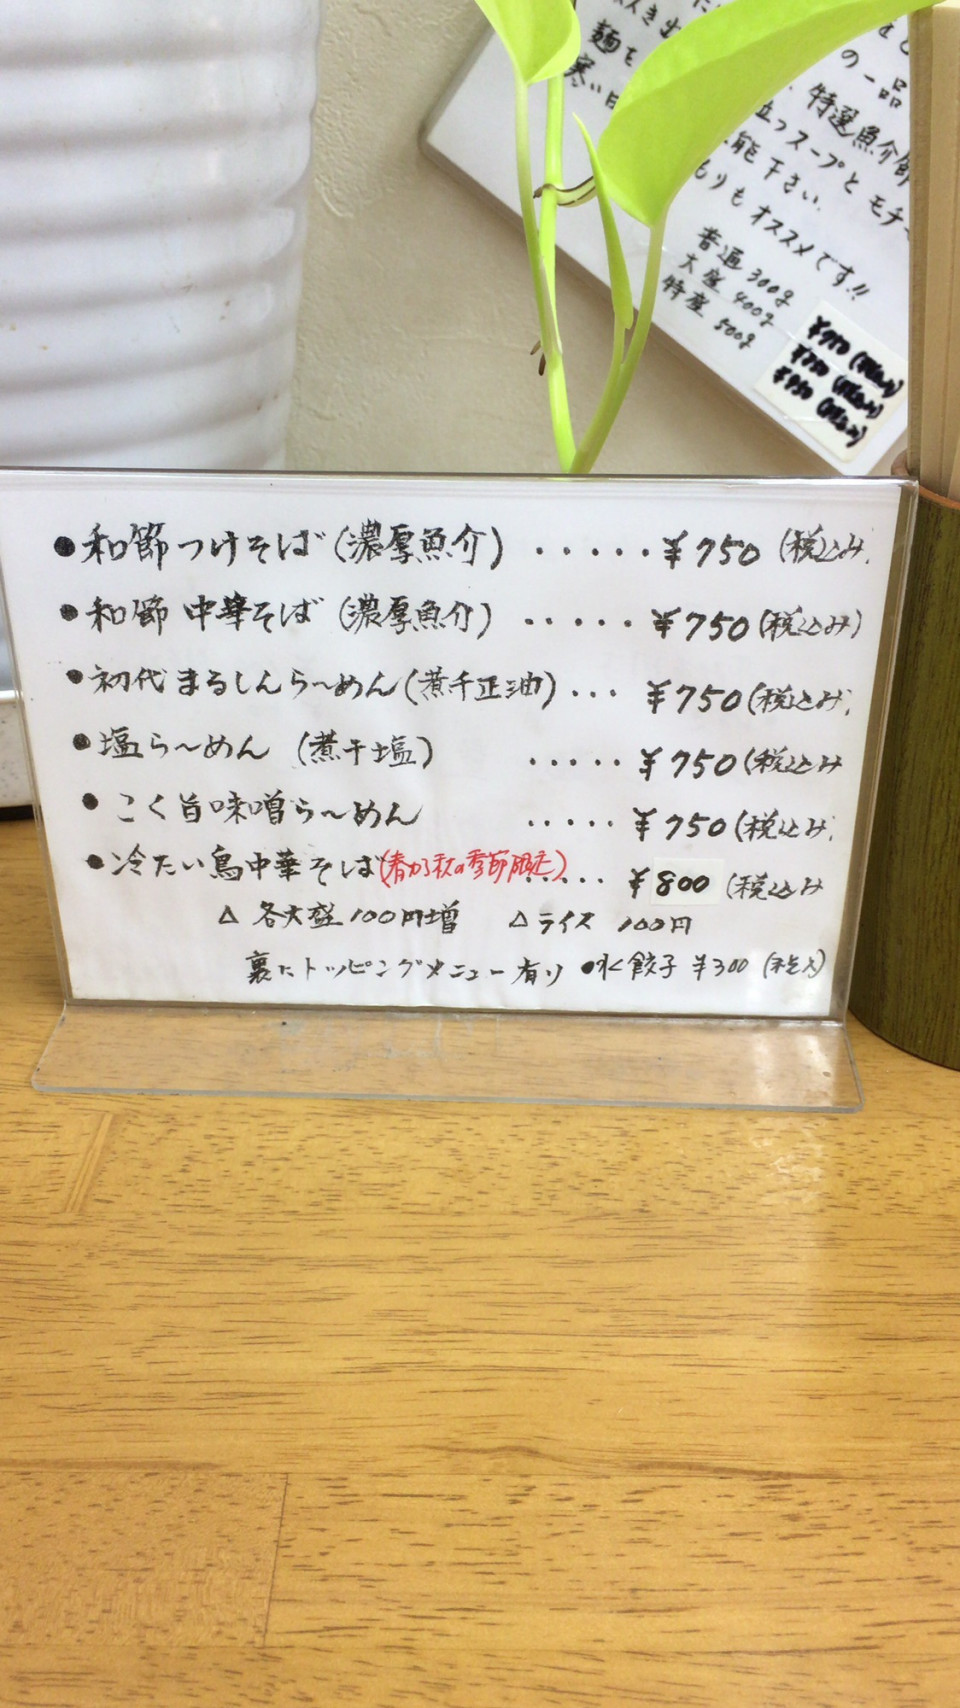 の一品
麺を
特選魚介節
寒い日
立つスープとモチ
能下さい.
もりもオススメです!!
普通 300g
大盛 400g
特盛 500g
¥750 (税込み)
¥850 (税込み)
¥950 (税込み)
●和節つけそば(濃厚魚介) ・・・・・¥750 (税込み)
●和節 中華そば(濃厚魚介) ・・・・・¥750(税込み)
●初代まるしんら〜めん(煮干正油)・・・ ¥750(税込み)
●塩ら〜めん (煮干塩) ・・・・・¥750(税込み
●こく旨味噌ら〜めん ・・・・・¥750(税込み)
●冷たい鳥中華そば(春から秋の季節限定)・・・・ ¥800 (税込み
△ 各大盛100円増 △ライス 100円
裏にトッピングメニュー有り ●水餃子 ¥300 (税込)